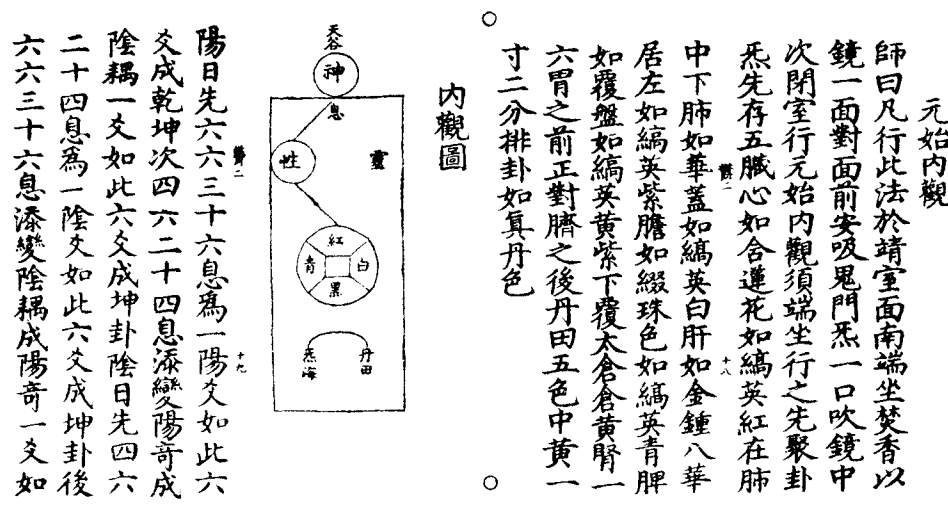 元始內觀
師曰凡行此法於靖室面南端坐焚香以
鏡一面對面前安吸鬼門炁一口吹鏡中
次閉室行元始內觀須端坐行之先聚卦
炁先存五臟心如含蓮花如縞英紅在肺
中下肺如華蓋如縞英白肝如金鍾八華
居左如縞英紫膽如綴珠色如縞英青脾
如覆盤如縞英黃紫下覆太倉倉黃腎一
六胃之前正對臍之後丹田五色中黃一
寸二分排卦如真丹色
十八
內觀圖
天谷
神
息
性
靈
紅
青
白
黑
炁海
丹田
陽日先六六三十六息為一陽爻如此六
爻成乾坤次四六二十四息添變陽竒成
陰耦一爻如此六爻成坤卦陰日先四六
二十四息為一陰爻如此六爻成坤卦後
六六三十六息添變陰耦成陽竒一爻如
十九